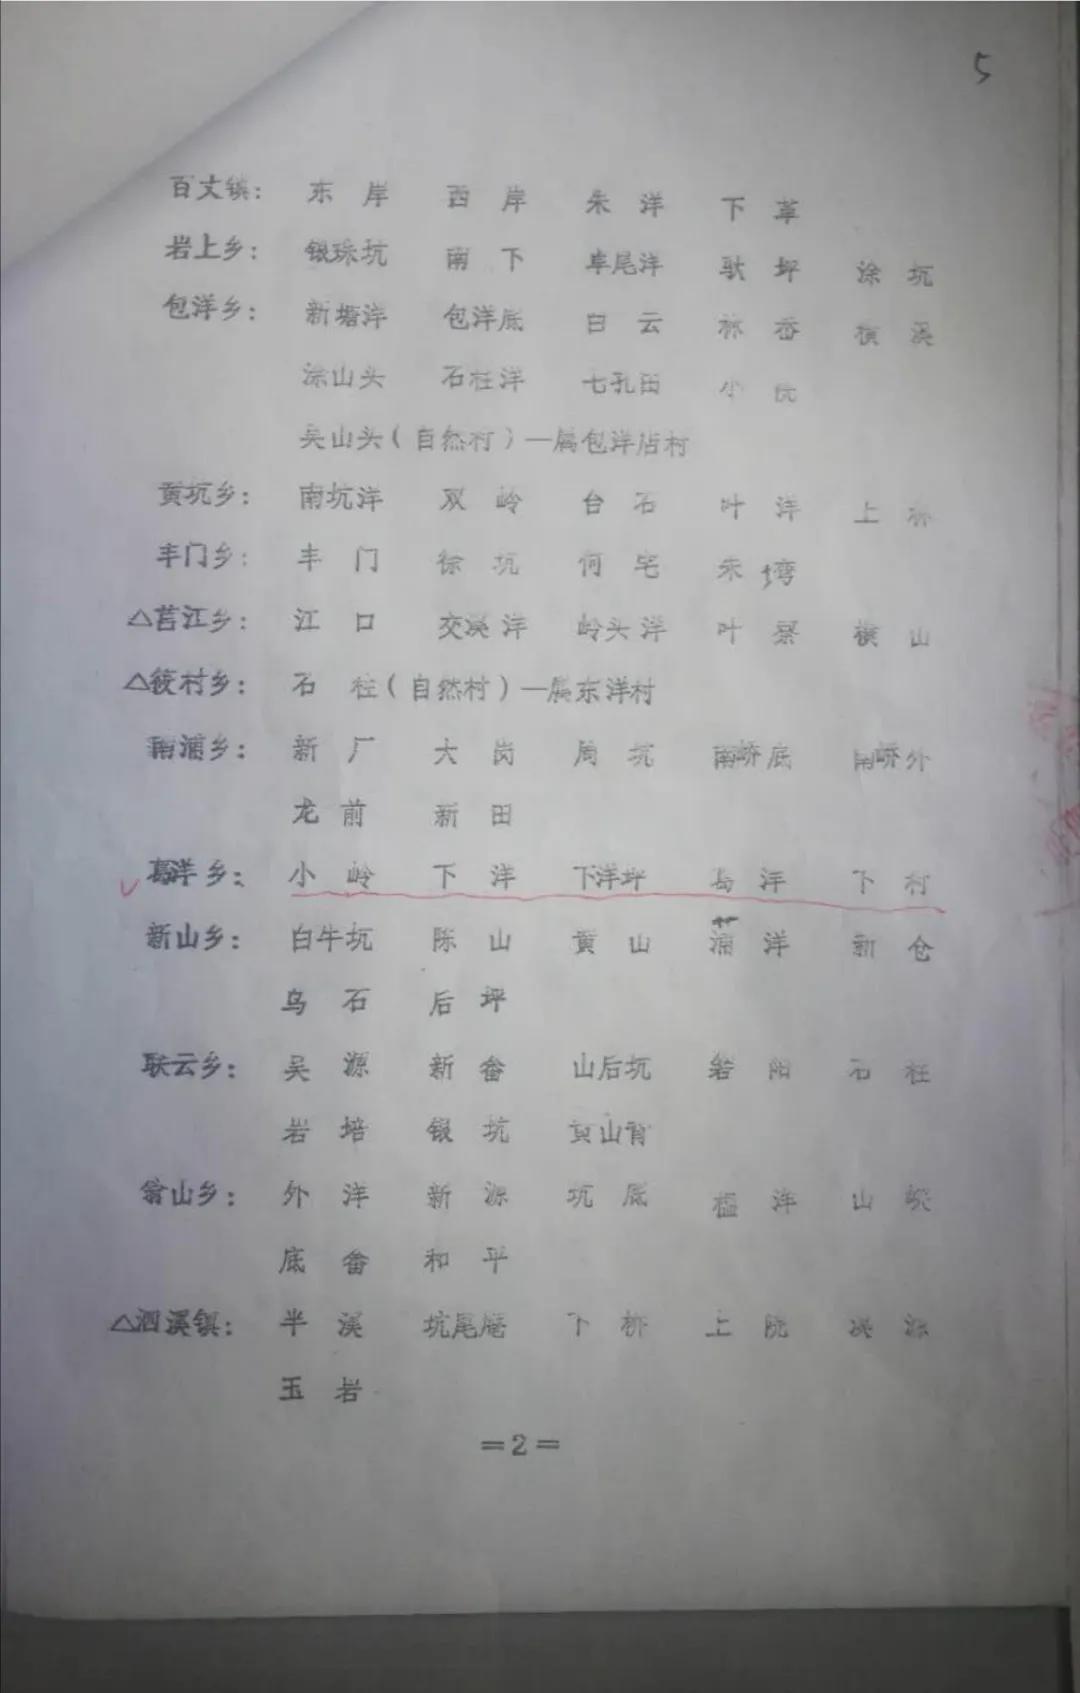 5
百丈镇： 东岸 西岸 朱洋 下革
岩上乡： 银珠坑 南下 卓尾洋 驮坪 涂坑
包洋乡： 新塘洋 包洋底 白云 林畲 横溪
涂山头 石柱洋 七孔田 小
吴山头（自然村）—属包洋后村
黄坑乡： 南坑洋 双岭 台石 叶洋 上林
丰门乡： 丰门 徐坑 何宅 朱垮
△莒江乡： 江口 交溪洋 岭头洋 叶寮 横山
△筱村乡： 石柱（自然村）—属东洋村
南浦乡： 新厂 大岗 周坑 南峤底 南峤外
龙前 新田
葛洋乡： 小岭 下洋 下洋坪 葛洋 下村
新山乡： 白牛坑 陈山 黄山 洋 新仓
乌石 后坪
联云乡： 吴源 新畲 山后坑 岩阳 石柱
岩培 银坑 黄山背
翁山乡： 外洋 新源 坑底 洋 山
底畲 和平
△泗溪镇： 半溪 坑尾庵 下桥 上 溪源
玉岩
=2=